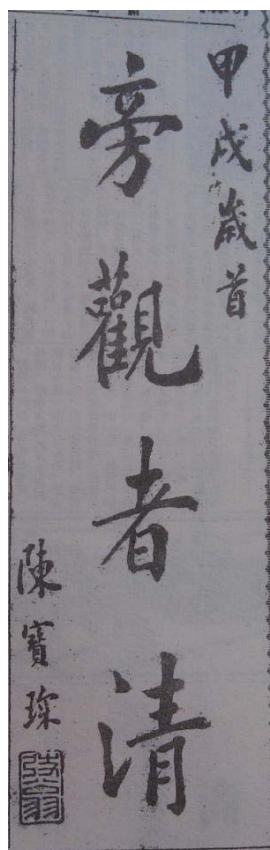 甲戌歲首
旁觀者清
陳寶琛